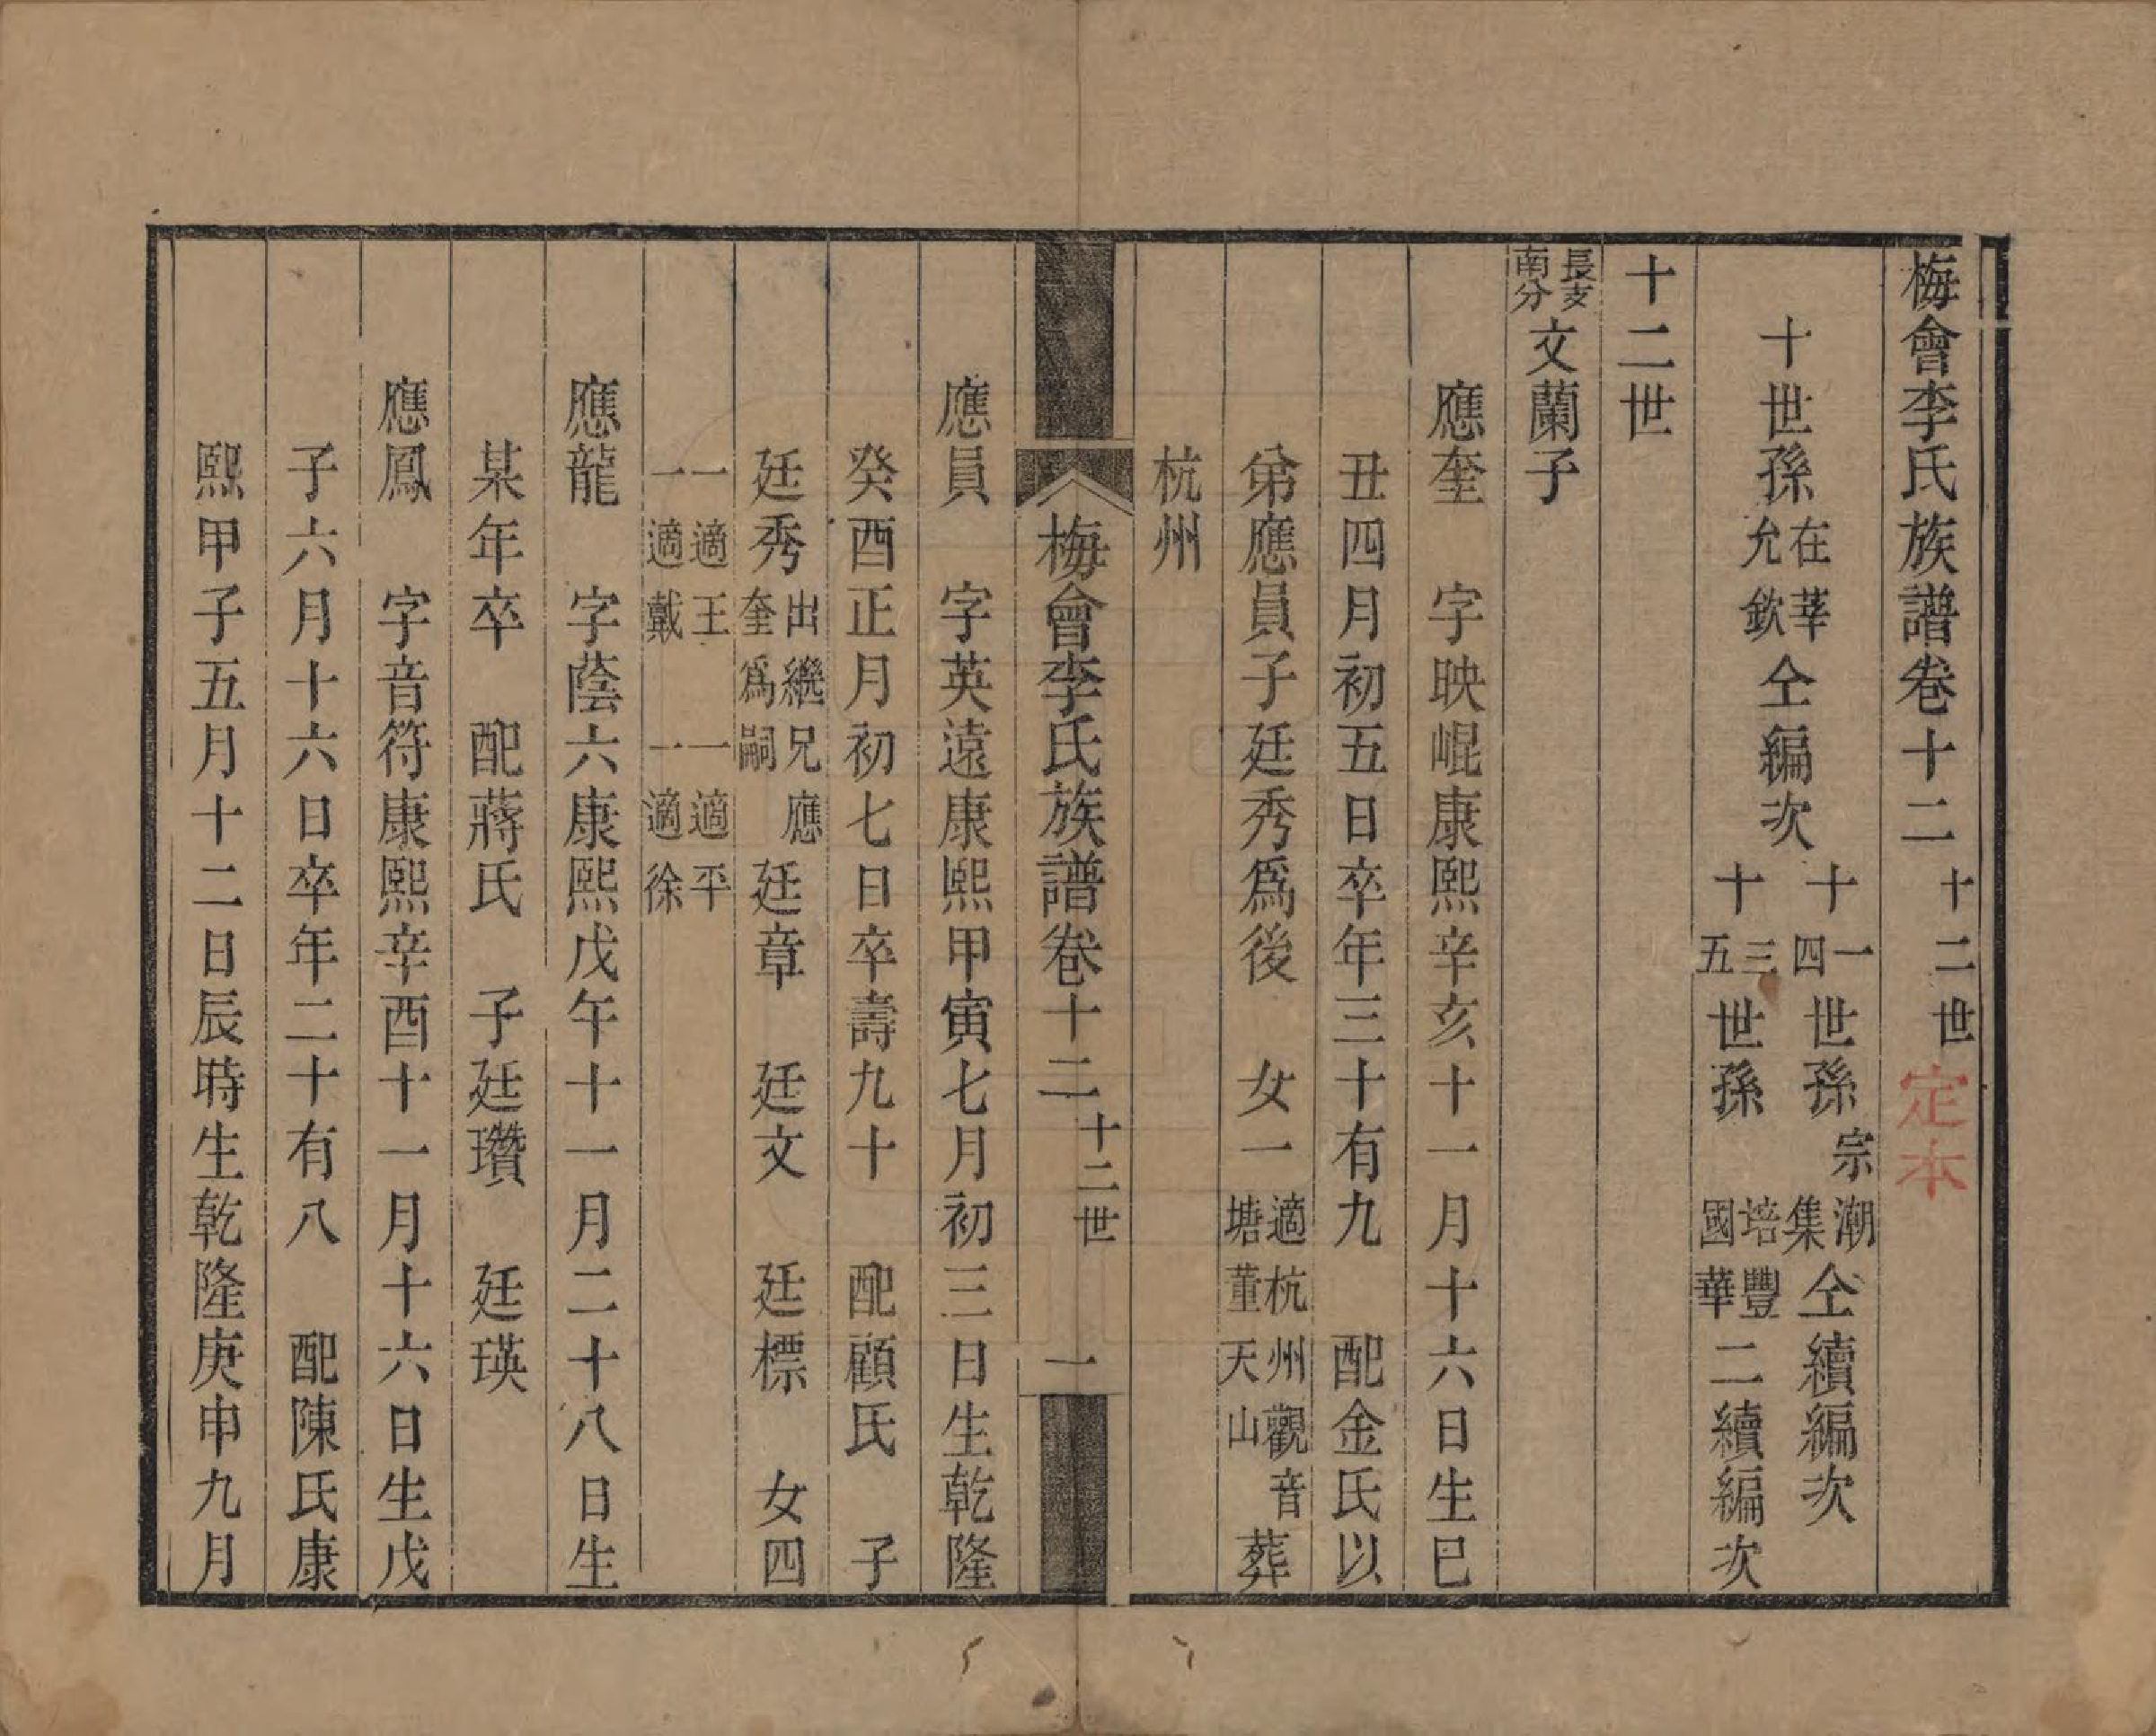 梅會李氏族譜卷十二 十二世 定本
十世孫在莘允欽仝編次 十一世孫宗潮集仝續編次
十四世孫
十三世孫培豐國華二續編次
十五
十二世
長支南分文蘭子
應奎 字映崐康熙辛亥十一月十六日生巳
丑四月初五日卒年三十有九 配金氏以
弟應員子廷秀爲後 女一適杭州觀音塘董天山葬
杭州
梅會李氏族譜卷十二 十二世 一
應員 字英遠康熙甲寅七月初三日生乾隆
癸酉正月初七日卒壽九十 配顧氏 子
廷秀出繼兄應奎爲嗣 廷章 廷文 廷標 女四
一適王 一適平一適戴 一適徐
應龍 字蔭六康熙戊午十一月二十八日生
某年卒 配蔣氏 子廷瓚 廷瑛
應鳳 字音符康熙辛酉十一月十六日生戊
子六月十六日卒年二十有八 配陳氏康
熙甲子五月十二日辰時生乾隆庚申九月